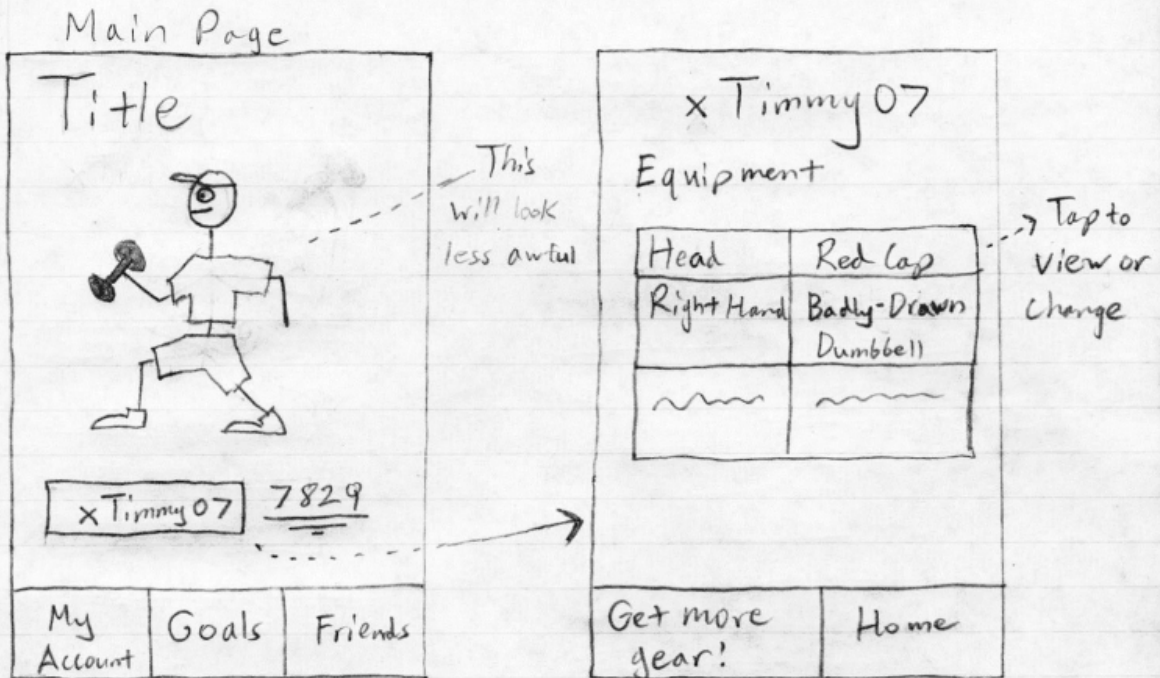 Main Page
Title
This
will look
less awful
xTimmy07
7829
My
Account
Goals
Friends
xTimmy07
Equipment
Head
Red Cap
Right Hand
Badly-Drawn
Dumbbell
Tap to
view or
change
Get more
gear!
Home